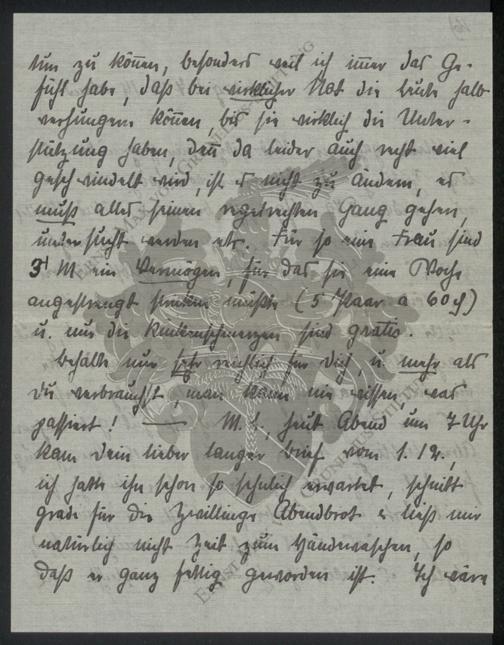 tun zu können, besonders weil ich immer das Ge-
fühl habe, daß bei wirklicher Not die Leute halb
verhungern können, bis sie wirklich die Unter-
stützung haben, denn da leider auch recht viel
geschwindelt wird, ist es nicht zu ändern, es
muß alles seinen regelrechten Gang gehen,
untersucht werden etc. Für so eine Frau sind
3 M ein Vermögen, für das sie eine Woche
angestrengt stricken müßte (5 Paar a 60 ₰)
u. nur die Rückenschmerzen sind gratis.
Behalte nur sehr reichlich für Dich u. mehr als
Du verbrauchst, man kann nie wissen was
passiert! — M. L., heut Abend um 7 Uhr
kam Dein lieber langer Brief vom 1. 12.,
ich hatte ihn schon so sehnlich erwartet, schnitt
grade für die Zwillinge Abendbrot u. ließ mir
natürlich nicht Zeit zum Händewaschen, so
daß er ganz fettig geworden ist. Ich wäre